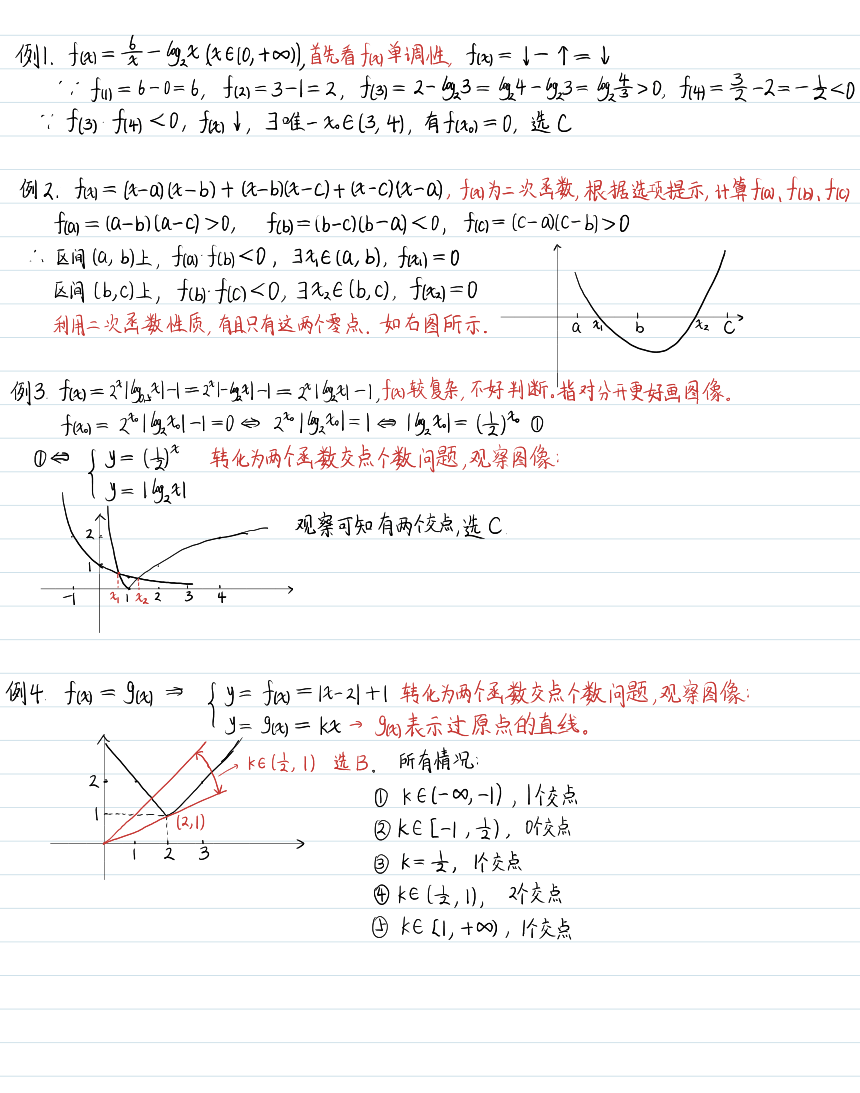 例1. f(x) = 6/x − log₂x (x∈(0,+∞)), 首先看f(x)单调性, f(x) = ↓ − ↑ = ↓
∵ f(1) = 6−0=6, f(2) = 3−1 = 2, f(3) = 2−log₂3 = log₂4−log₂3 = log₂4/3 > 0, f(4) = 3/2 −2 = −1/2 <0
∵ f(3)·f(4) < 0, f(x)↓, ∃唯一x₀∈(3,4), 有f(x₀) = 0, 选C
例2. f(x) = (x−a)(x−b) + (x−b)(x−c) + (x−c)(x−a), f(x)为二次函数, 根据选项提示, 计算f(a)、f(b)、f(c)
f(a) = (a−b)(a−c) >0, f(b) = (b−c)(b−a) <0, f(c) = (c−a)(c−b) >0
∴ 区间(a,b)上, f(a)·f(b) <0, ∃x₁∈(a,b), f(x₁) = 0
区间(b,c)上, f(b)·f(c) <0, ∃x₂∈(b,c), f(x₂) = 0
利用二次函数性质, 有且只有这两个零点. 如右图所示.
a x₁ b x₂ c
例3. f(x) = 2ˣ|log₀.₅x|−1 = 2ˣ|−log₂x|−1 = 2ˣ|log₂x|−1, f(x)较复杂, 不好判断。指对分开更好画图像。
f(x₀) = 2^x₀|log₂x₀|−1 = 0 ⇔ 2^x₀|log₂x₀| = 1 ⇔ |log₂x₀| = (1/2)^x₀ ①
①⇔ { y = (1/2)ˣ 转化为两个函数交点个数问题, 观察图像:
y = |log₂x|
观察可知有两个交点, 选C.
2
1
−1 x₁ 1 x₂ 2 3 4
例4. f(x) = g(x) ⇒ { y = f(x) = |x−2|+1 转化为两个函数交点个数问题, 观察图像:
y = g(x) = kx → g(x)表示过原点的直线。
→ k∈(1/2, 1) 选B. 所有情况:
2
1
(2,1)
1 2 3
① k∈(−∞,−1), 1个交点
② k∈[−1, 1/2), 0个交点
③ k = 1/2, 1个交点
④ k∈(1/2, 1), 2个交点
⑤ k∈[1, +∞), 1个交点